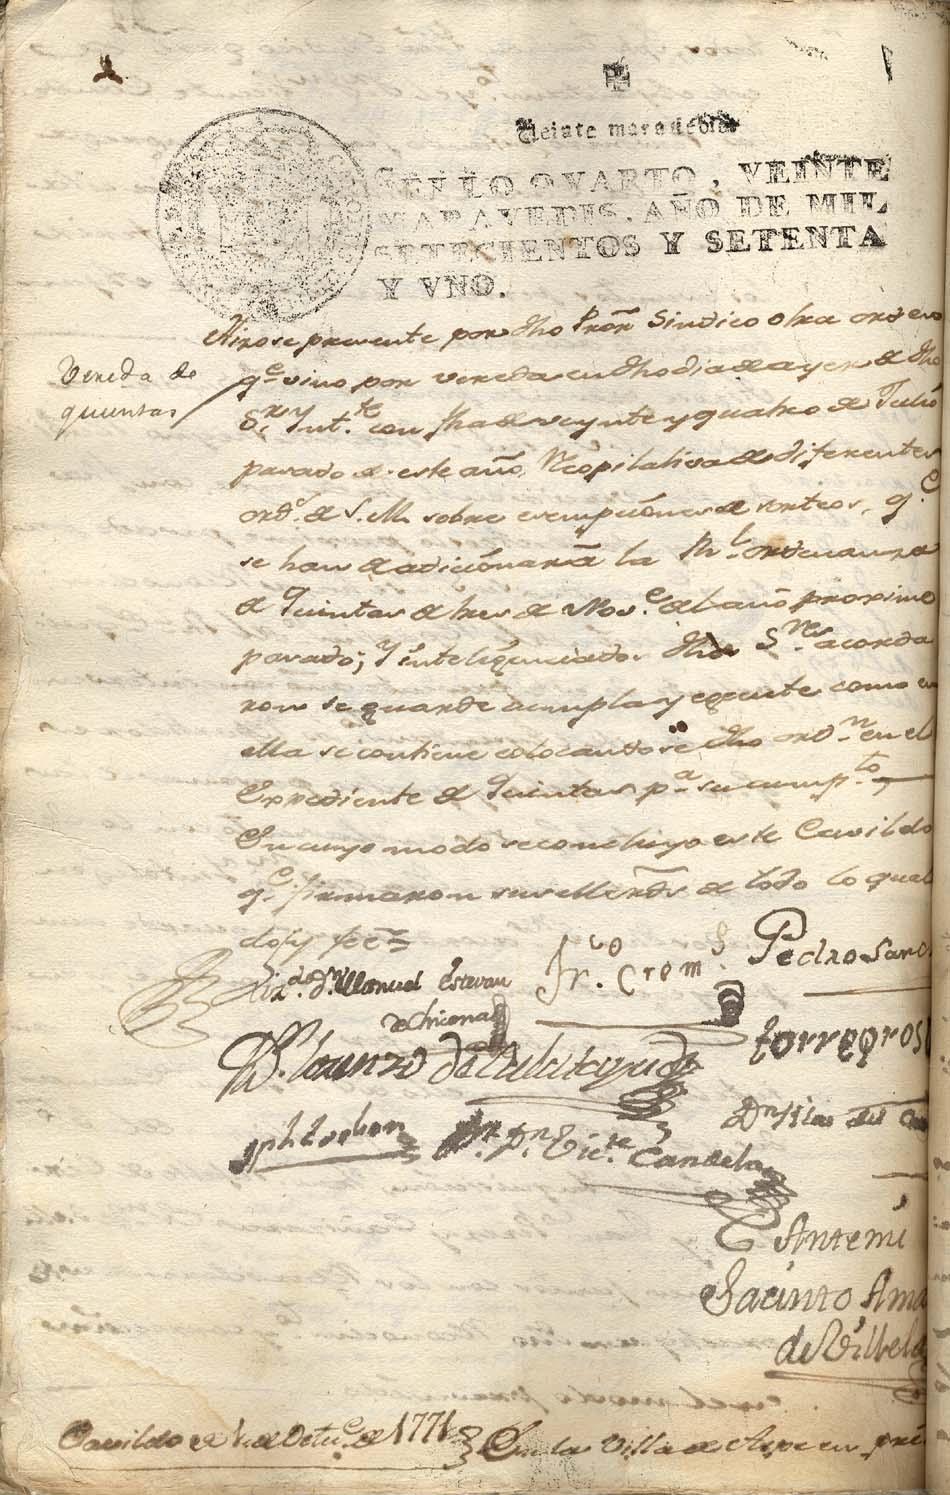 Veinte maravedis.
SELLO QVARTO, VEINTE
MARAVEDIS, AÑO DE MIL
SETECIENTOS Y SETENTA
Y VNO.
Vereda de
quintas
Hizose presente por dho Pror Sindico otra orden
qe vino por vereda en dho dia de ayer de dho
Sr Yntte con fha de veynte y quatro de Julio
pasado de este año, Recopilativa de diferentes
ords de S.M. sobre exempciones de sorteos, qe
se han de adicionar a la Rl ordenanza
de Quintas de tres de Nove del año proximo
pasado; Y inteligenciados dhos Sres acorda
ron se guarde cumpla y egecute como en
ella se contiene colocandose dha ordn en el
Expediente de Quintas pa su cumpto
En cuyo modo se concluyo este Cavildo
qe firmaron sus Mrds de todo lo qual
doy fee
Lizdo Dn Manuel Estevan
Franco Crems
Pedro Sanc
torregros
Dn Lorenzo de Calatayud
Jph
Dn Victe Candela
Dn Blas del
Antemi
Jacinto Ama
de Villela
Cavildo de 1 de Octue de 1771
En la Villa de Aspe en pri